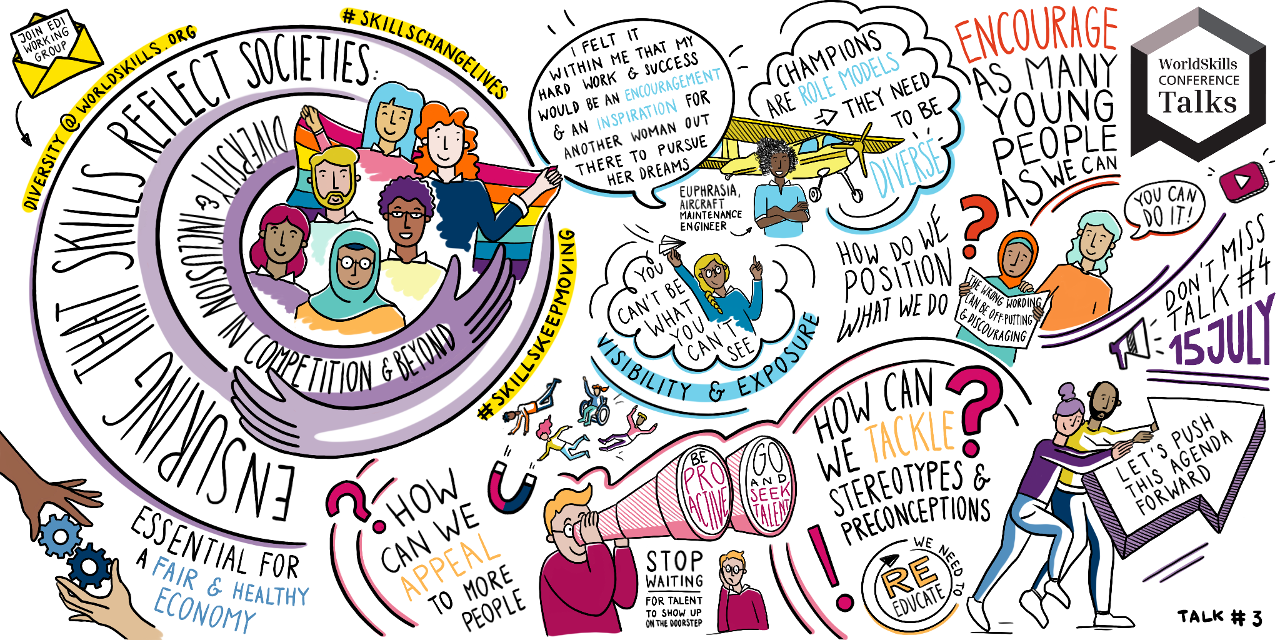 JOIN EDI
WORKING
GROUP
DIVERSITY @ WORLDSKILLS.ORG
# SKILLSCHANGELIVES
#SKILLSKEEPMOVING
ENSURING THAT SKILLS REFLECT SOCIETIES:
DIVERSITY & INCLUSION IN COMPETITION & BEYOND
ESSENTIAL FOR
A FAIR & HEALTHY
ECONOMY
I FELT IT
WITHIN ME THAT MY
HARD WORK & SUCCESS
WOULD BE AN ENCOURAGEMENT
& AN INSPIRATION FOR
ANOTHER WOMAN OUT
THERE TO PURSUE
HER DREAMS
EUPHRASIA,
AIRCRAFT
MAINTENANCE
ENGINEER
CHAMPIONS
ARE ROLE MODELS
THEY NEED
TO BE
DIVERSE
YOU
CAN'T BE
WHAT
YOU
CAN'T
SEE
VISIBILITY & EXPOSURE
ENCOURAGE
AS MANY
YOUNG
PEOPLE
AS WE CAN
WorldSkills
CONFERENCE
Talks
YOU CAN
DO IT!
HOW DO WE
POSITION
WHAT WE DO
?
THE WRONG WORDING
CAN BE OFF-PUTTING
& DISCOURAGING
DON'T MISS
TALK #4
15 JULY
?
HOW
CAN WE
APPEAL
TO MORE
PEOPLE
BE
PRO
ACTIVE
GO
AND
SEEK
TALENT
STOP
WAITING
FOR TALENT
TO SHOW UP
ON THE DOORSTEP
HOW CAN
WE TACKLE
STEREOTYPES &
PRECONCEPTIONS
?
!
WE NEED TO
RE
EDUCATE
LET'S PUSH
THIS AGENDA
FORWARD
TALK # 3